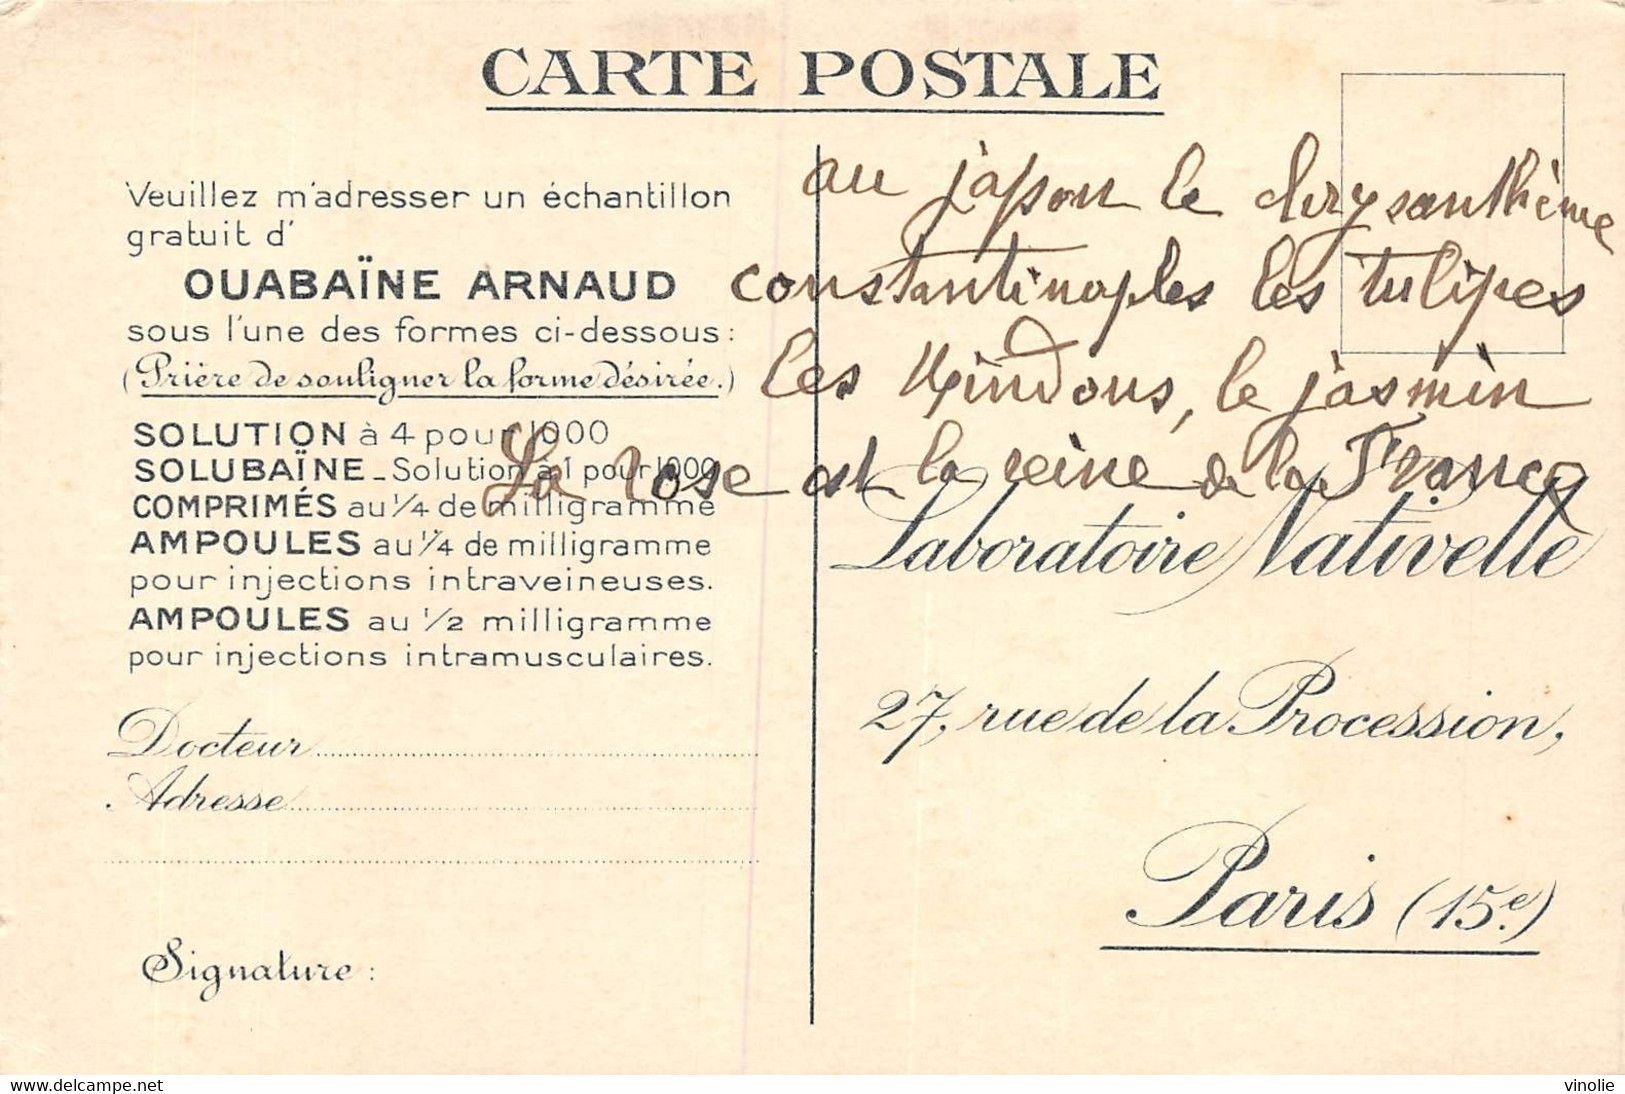 CARTE POSTALE
Veuillez m'adresser un échantillon
gratuit d'
OUABAÏNE ARNAUD
sous l'une des formes ci-dessous :
(Prière de souligner la forme désirée.)
SOLUTION à 4 pour 1000
SOLUBAÏNE - Solution à 1 pour 1000
COMPRIMÉS au 1/4 de milligramme
AMPOULES au 1/4 de milligramme
pour injections intraveineuses.
AMPOULES au 1/2 milligramme
pour injections intramusculaires.
Docteur
Adresse
Signature :
au japon le chrysanthème
constantinoples les tulipes
les Hindous, le jasmin
La rose est la reine de la France
Laboratoire Nativelle
27, rue de la Procession,
Paris (15e.)
www.delcampe.net
vinolie